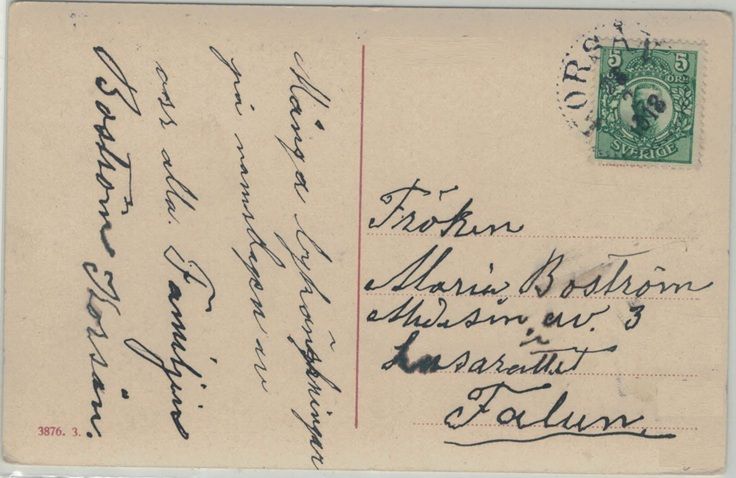 Många lyckönskningar
på namnsdagen av
oss alla. Familjen
Boström Korsån.
KORSÅN
5 5
ÖRE
SVERIGE
Fröken
Maria Boström
Medesin av. 3
Lasarattet
Falun.
3876. 3.